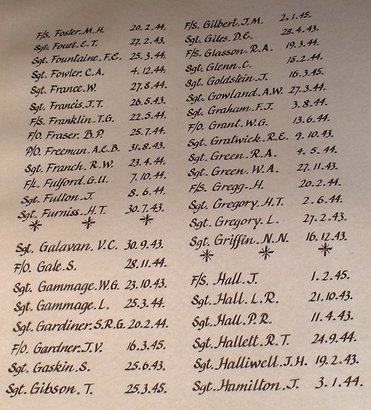 F/S. Foster. M.H. 20.2.44.
Sgt. Fouet. E.T. 27.2.43.
Sgt. Fountaine. F.E. 25.3.44.
Sgt. Fowler. C.A. 4.12.44.
Sgt. France. W. 27.8.44.
Sgt. Francis. J.T. 26.5.43.
F/S. Franklin. T.G. 22.5.44.
F/O. Fraser. B.P. 25.7.44.
P/O. Freeman. A.E.B. 31.8.43.
Sgt. Franch. R.W. 23.4.44.
F/L. Fulford. G.U. 7.10.44.
Sgt. Fulton. J. 8.6.44.
Sgt. Furniss. H.T. 30.7.43.
Sgt. Galavan. V.C. 30.9.43.
F/O. Gale. S. 28.11.44.
Sgt. Gammage. W.G. 23.10.43.
Sgt. Gammage. L. 25.3.44.
Sgt. Gardiner. S.R.G. 20.2.44.
F/O. Gardner. J.V. 16.3.45.
Sgt. Gaskin. S. 25.6.43.
Sgt. Gibson. T. 25.3.45.
F/S. Gilbert. J.M. 2.1.45.
Sgt. Giles. D.E. 28.4.43.
F/S. Glasson. R.A. 19.3.44.
Sgt. Glenn. C. 15.2.44.
Sgt. Goldstein. J. 16.3.45.
Sgt. Gowland. A.W. 27.3.44.
Sgt. Graham. F.J. 3.8.44.
F/O. Grant. W.G. 13.6.44.
Sgt. Gratwick. R.E. 9.10.43.
Sgt. Green. R.A. 4.5.44.
Sgt. Green. W.A. 27.11.43.
F/S. Gregg. H. 20.2.44.
Sgt. Gregory. H.T. 2.6.44.
Sgt. Gregory. L. 27.2.43.
Sgt. Griffin. N.N. 16.12.43.
F/S. Hall. J. 1.2.45.
Sgt. Hall. L.R. 21.10.43.
Sgt. Hall. P.R. 11.4.43.
Sgt. Hallett. R.T. 24.9.44.
Sgt. Halliwell. J.H. 19.2.43.
Sgt. Hamilton. J. 3.1.44.